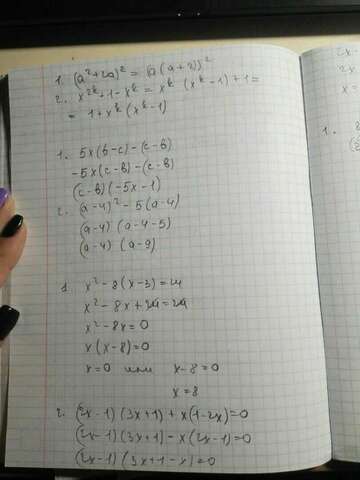 1. (a²+2a)² = (a(a+2))²
2. x²ᵏ+1-xᵏ = xᵏ (xᵏ-1)+1=
= 1+xᵏ(xᵏ-1)
1. 5x(b-c)-(c-b)
-5x(c-b)-(c-b)
(c-b)(-5x-1)
2. (a-4)²-5(a-4)
(a-4)(a-4-5)
(a-4)(a-9)
1. x²-8(x-3)=24
x²-8x+24=24
x²-8x=0
x(x-8)=0
x=0 или x-8=0
x=8
2. (2x-1)(3x+1)+x(1-2x)=0
(2x-1)(3x+1)-x(2x-1)=0
(2x-1)(3x+1-x)=0
2x-
2x
x=
1.